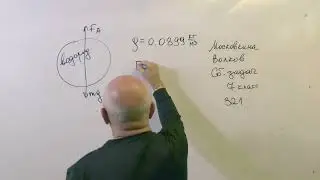 FA
водород
mg
ρ = 0,0899 кг/м³
Fт
Московкина
Волков
Сб. задач
7 класс
321